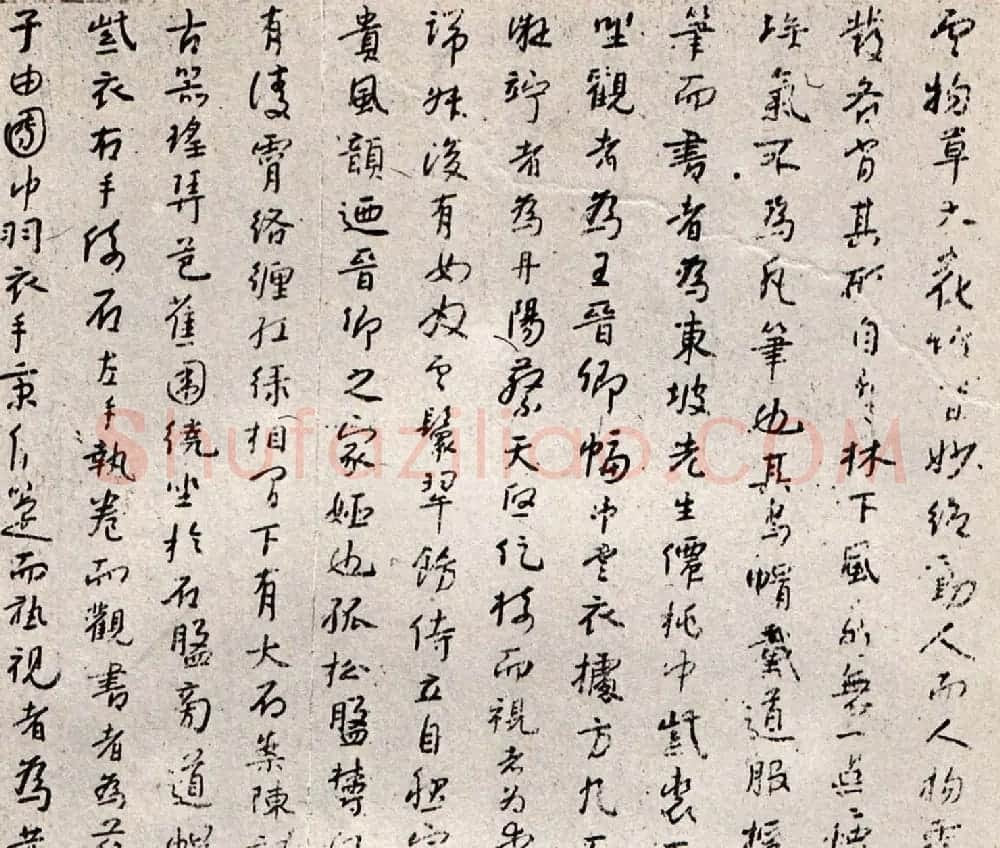 雲物草木花竹皆妙絕動人而人物秀
發各肖其形自有林下風味無一點塵
埃氣不為凡筆也其烏帽黃道服捉
筆而書者為東坡先生僊桃巾紫裘而
坐觀者為王晉卿幅巾青衣據方几而
凝竚者為丹陽蔡天啓捉椅而視者為李
端叔後有女奴雲鬟翠飾侍立自然富
貴風韻迺晉卿之家姬也孤松盤欝上
有淩霄絡纏紅綠相間下有大石案陳設
古器瑤琴芭蕉圍繞坐於石盤旁道帽
紫衣右手倚石左手執卷而觀書者為蘇
子由團巾羽衣手秉蕉箑而熟視者為黃
Shufaziliao.COM